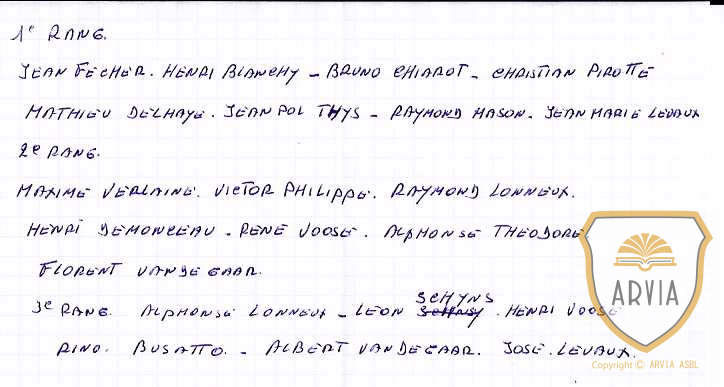 1e RANG.
JEAN FECHER. HENRI BLANCHY - BRUNO CHIAROT - CHRISTIAN PIROTTE
MATHIEU DELHAYE. JEAN POL THYS - RAYMOND HASON. JEAN MARIE LEVAUX
2e RANG.
MAXIME VERLAINE. VICTOR PHILIPPE. RAYMOND LONNEUX.
HENRI DEMONCEAU - RENE VOOSE. ALPHONSE THEODORE
FLORENT VANDEGAAR.
SCHYNS
3e RANG. ALPHONSE LONNEUX - LEON . HENRI VOOSE
RINO. BUSATTO. - ALBERT VANDEGAAR. JOSE. LEVAUX.
ARVIA
Copyright © ARVIA ASBL